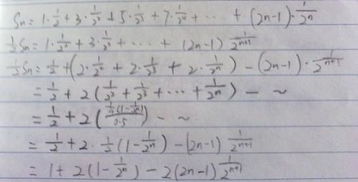 Sn = 1·1/2 + 3·1/2² + 5·1/2³ + 7·1/2⁴ + ··· + (2n-1)·1/2ⁿ
1/2 Sn = 1·1/2² + 3·1/2³ + ··· + (2n-1)·1/2ⁿ⁺¹
1/2 Sn = 1/2 + (2·1/2² + 2·1/2³ + 2·1/2ⁿ) - (2n-1)·1/2ⁿ⁺¹
= 1/2 + 2(1/2² + 1/2³ + ··· + 1/2ⁿ) - ~
= 1/2 + 2( ) - ~
= 1/2 + 2·1/2(1-1/2ⁿ) - (2n-1)1/2ⁿ⁺¹
= 1 + 2(1-1/2ⁿ) - 2(2n-1)1/2ⁿ⁺¹